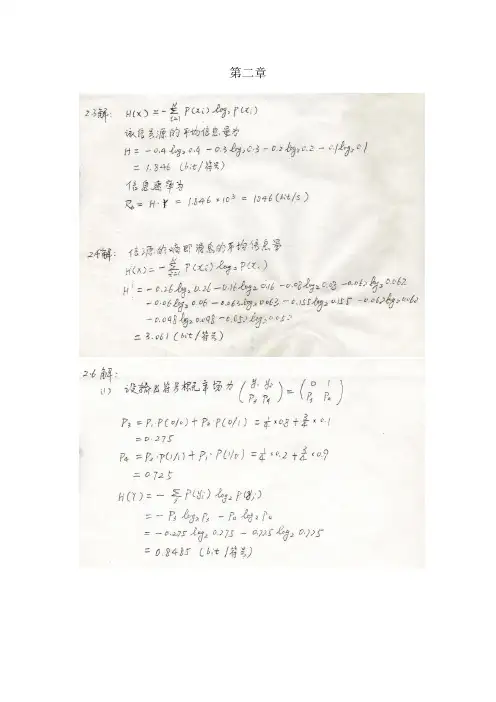 第二章
2.3解: H(x)=-∑_{i=1}^{N} P(xi) log₂ P(xi)
该信息源的平均信息量为
H=-0.4log₂0.4-0.3log₂0.3-0.2log₂0.2-0.1log₂0.1
=1.846 (bit/符号)
信息速率为
R_b=H·r=1.846×10³=1846(bit/s)
2.4解: 信源的熵即消息的平均信息量
H(x)=-∑ P(xi)log₂P(xi)
H=-0.26log₂0.26-0.16log₂0.16-0.08log₂0.08-0.062log₂0.062
-0.06log₂0.06-0.063log₂0.063-0.155log₂0.155-0.062log₂0.062
-0.098log₂0.098-0.052log₂0.052
=3.061(bit/符号)
2.6解:
(1) 设输出符号概率场为 (y₁ y₂ / P₃ P₄)=(0 1 / P₃ P₄)
P₃=P₁P(0/0)+P₂·P(0/1)=¼×0.8+¾×0.1
=0.275
P₄=P₂·P(1/1)+P₁·P(1/0)=¼×0.2+¾×0.9
=0.725
H(Y)=-∑ P(yi)log₂P(yi)
=-P₃log₂P₃-P₄log₂P₄
=-0.275log₂0.275-0.725log₂0.725
=0.8485 (bit/符号)